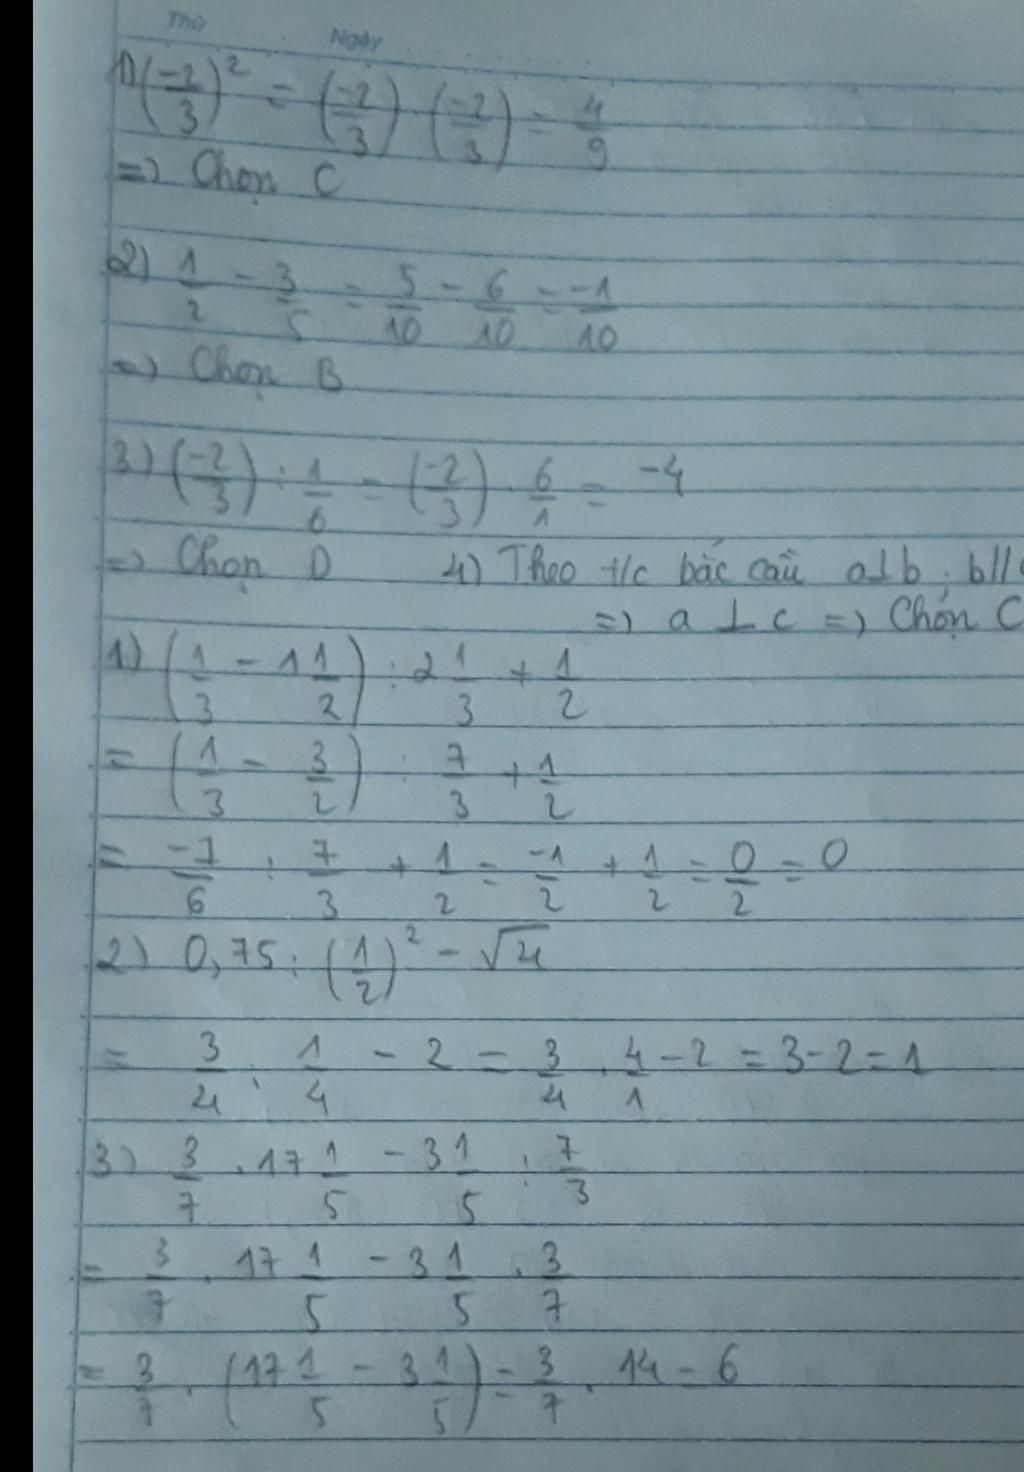 Thứ Ngày
1) (-2/3)² = (-2/3) (-2/3) = 4/9
=> Chọn C
2) 1/2 - 3/5 = 5/10 - 6/10 = -1/10
=> Chọn B
3) (-2/3) : 1/6 = (-2/3) . 6/1 = -4
=> Chọn D 4) Theo t/c bắc cầu a⊥b, b//
=> a ⊥ c => Chọn C
1) (1/3 - 1 1/2) : 2 1/3 + 1/2
= (1/3 - 3/2) : 7/3 + 1/2
= -7/6 : 7/3 + 1/2 = -1/2 + 1/2 = 0/2 = 0
2) 0,75 : (1/2)² - √4
= 3/4 : 1/4 - 2 = 3/4 . 4/1 - 2 = 3 - 2 = 1
3) 3/7 . 17 1/5 - 3 1/5 : 7/3
= 3/7 . 17 1/5 - 3 1/5 . 3/7
= 3/7 . (17 1/5 - 3 1/5) = 3/7 . 14 = 6